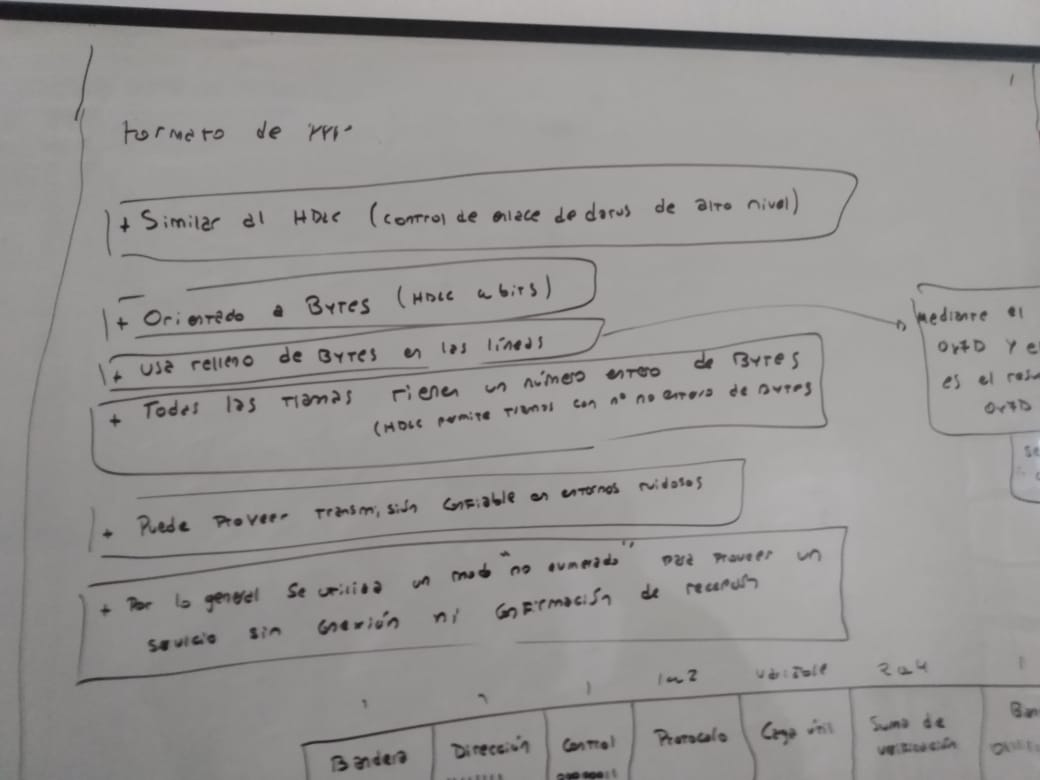 Formato de PPP
+ Similar al HDLC (control de enlace de datos de alto nivel)
+ Orientado a Bytes (HDLC a bits)
+ Usa relleno de Bytes en las líneas
+ Todas las tramas tienen un número entero de Bytes
(HDLC permite tramas con nº no entero de Bytes
+ Puede proveer transmisión confiable en entornos ruidosos
+ Por lo general se utiliza un modo "no numerado" para proveer un
servicio sin conexión ni confirmación de recepción
mediante el
0x7D y e
es el resu
0x7D
se
1 1 1 1 a 2 variable 2 a 4 1
Bandera Dirección Control Protocolo Carga útil Suma de verificación Ban